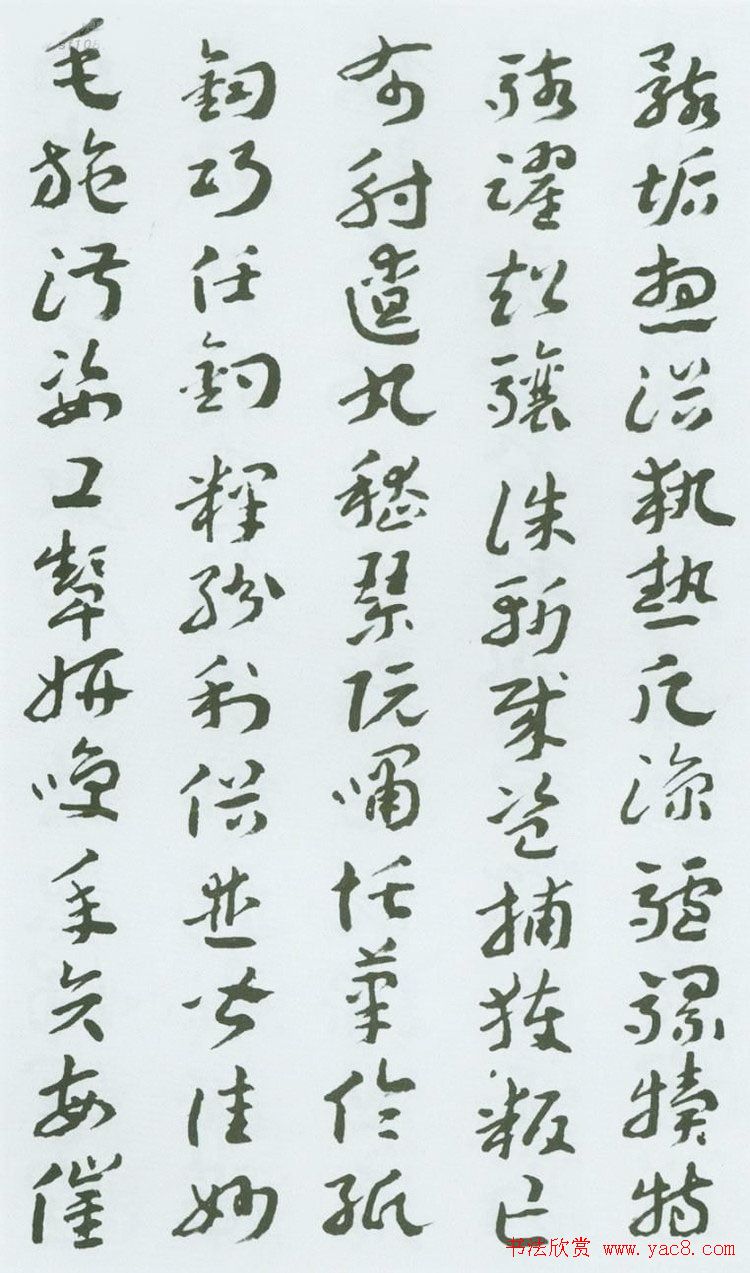 骸垢想浴執熱願涼驢騾犢特
駭躍超驤誅斬賊盜捕獲叛亡
布射遼丸嵇琴阮嘯恬筆倫紙
鈞巧任釣釋紛利俗並皆佳妙
毛施淑姿工顰妍咲年矢每催
书法欣赏 www.yac8.com